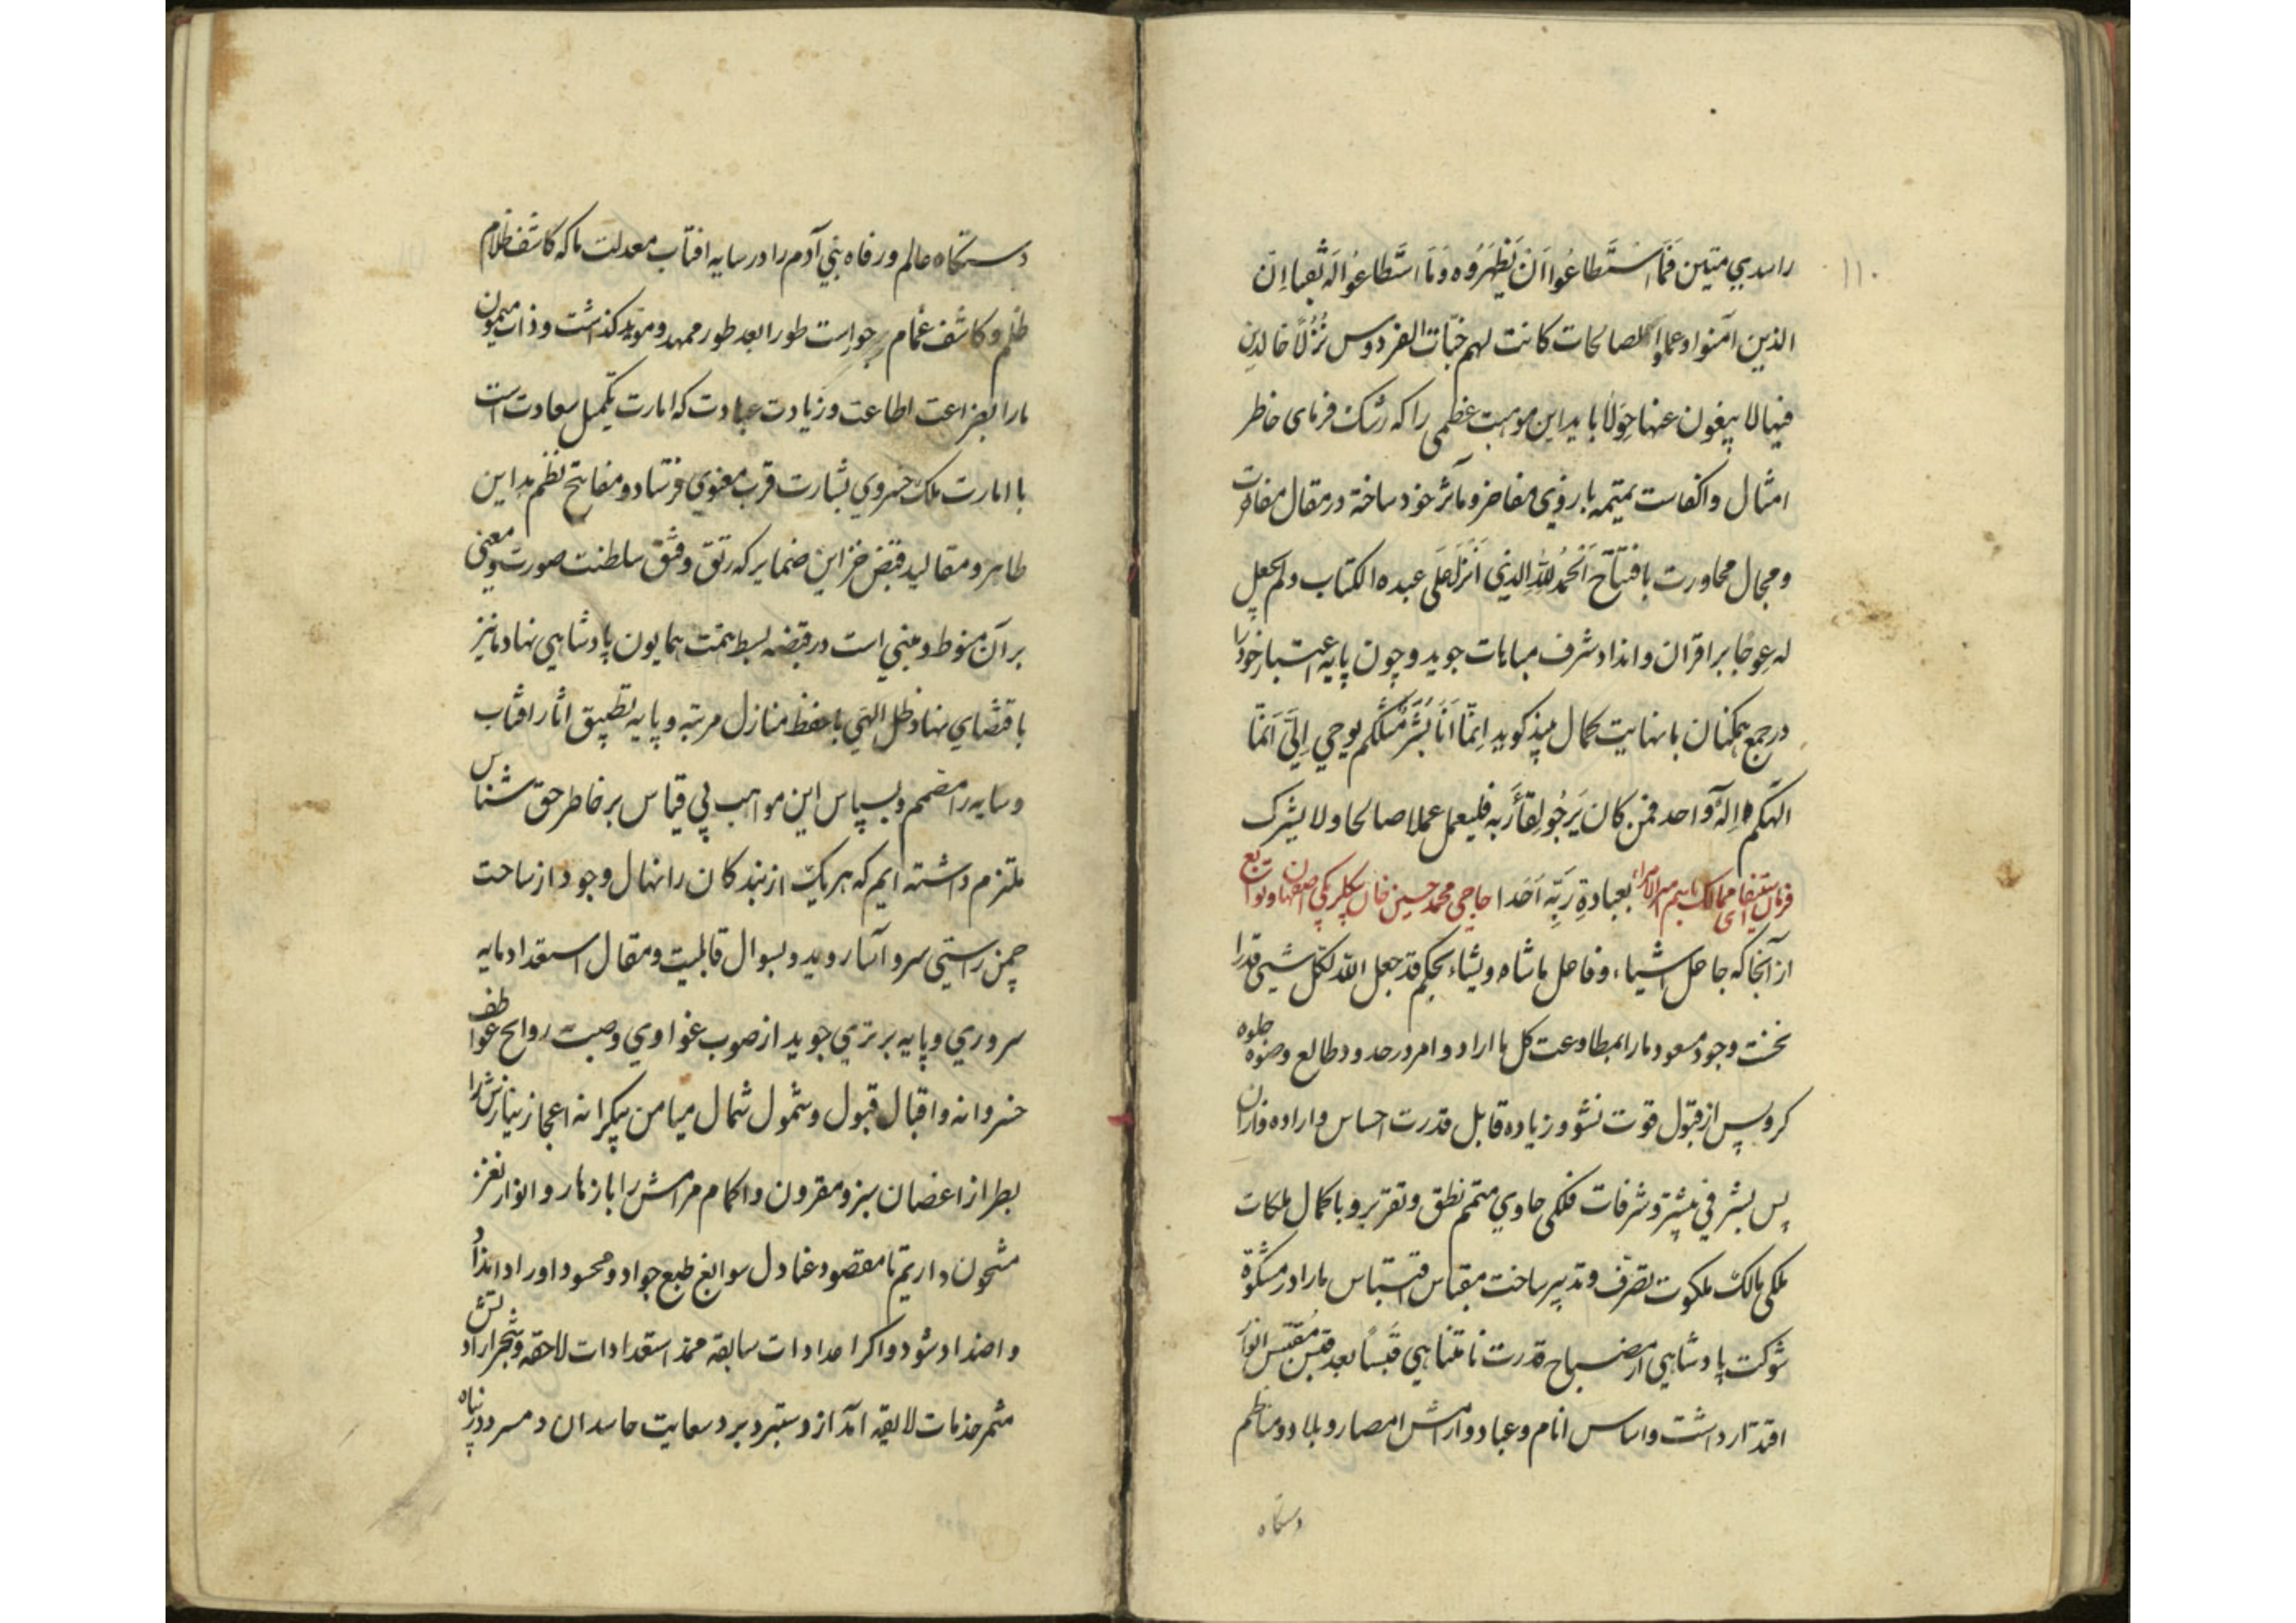 ۱۱۰
راسدیی متین فَمَا اسْتَطاعُوا اَنْ یَظْهَرُوه وَمَا اسْتَطاعُوا لَه نُقبا اِنَّ
الذین آمنوا وعملوا الصالحات کانت لهم جَنّات الفردوس نُزُلاً خالدین
فیها لا یبغون عنها حِوَلاً باید این موهبت عظمی را که رشک فرمای خاطر
امثال و اکفاست یمیمه بازوی مفاخر و مآثر خود ساخته در مقال مفاوضت
و مجال محاورت بافتتاح اَلحَمدُ لِلّهِ الذی اَنزَلَ عَلَی عبده الکتاب ولم یجعل
له عِوَجًا بر اقران و انداد شرف مباهات جوید و چون پایه اعتبار خود را
در جمع همکنان با نهایت کمال میند کوید اِنَّمَا اَنَا بَشَرٌ مِثْلُکُم یوحی اِلَیَّ اَنَّمَا
الهکم اِلهٌ واحد فمن کان یَرجُو لِقَآءَ رَبِّه فلیعمل عملا صالحا ولا یشرک
فرمان استیفای ممالک باسم امیرالامراء بعبادةِ رَبِّه اَحَدا حاجی محمد حسین خان بیکلربیکی اصفهان و توابع
از آنجا که جاعل اشیاء و فاعل ماشاء و یشاء بحکم قد جعل الله لکل شییٔ قدرا
نخست وجود مسعود ما را بمطاوعت کل ما اراد و امر در حدود طالع وضوء جلوه
کر و پس از قبول قوت نشو و زیاده قابل قدرت احساس و اراده فاران
پس بشر فی میشتر و شرفات فلکی حاوی متمم نطق و تقریر و با کمال ملکات
ملکی مالک ملکوت تصرف و تدبیر ساخت مقباس اقتباس ما را در مشکوة
شوکت پادشاهی از مصباح قدرت نامتناهی قَبَسًا بعد قبس مُقتَبس انوار
اقتدار داشت و اساس انام و عباد و آرامش امصار و بلاد و مناظم
دستکاه
دستکاه عالم و رفاه بنی آدم را در سایه افتاب معدلت ما که کاشف ظلام
ظلم و کاشف غمام جور است طورا بعد طور ممهد و موید کذاشت و ذات میمون
ما را بضراعت اطاعت و زیادت عبادت که امارت تکمیل سعادت است
با امارت ملک خسروی بشارت قرب معنوی فرستاد و مفاتح نظم مداین
ظاهر و مقالید قبض خزاین ضمایر که رتق و فتق سلطنت صورت و معنی
بر آن منوط و مبنی است در قبضه بسط همت همایون پادشاهی نهاد ما نیز
باقتضای نهاد ظل الهی با حفظ منازل مرتبه و پایه تطبیق اثار افتاب
و سایه را مصمم و بسپاس این مواهب بی قیاس بر خاطر حق شناس
ملتزم داشته ایم که هر یک از بندکان را نهال وجود از ساحت
چمن راستی سرو آسا روید و بسوال قابلیت و مقال استعداد مایه
سروری و پایه برتری جوید از صوب غوادی وصیت روایح عواطف
خسروانه و اقبال قبول و شمول شمال میامن بیکرانه اعجاز نیازش را
بطراز اغصان سبز و مقرون و اکمام مرامش را بازهار و انوار نغز
مشحون داریم تا مقصود عنادل سوابغ طبع جواد و محسود اوراد انداد
و اضداد شود و اکر اعدادات سابقه ممد استعدادات لاحقه و شجر ارادتش
مثمر خدمات لایقه آمد از دستبرد برد سعایت حاسدان دمسرد در پناه